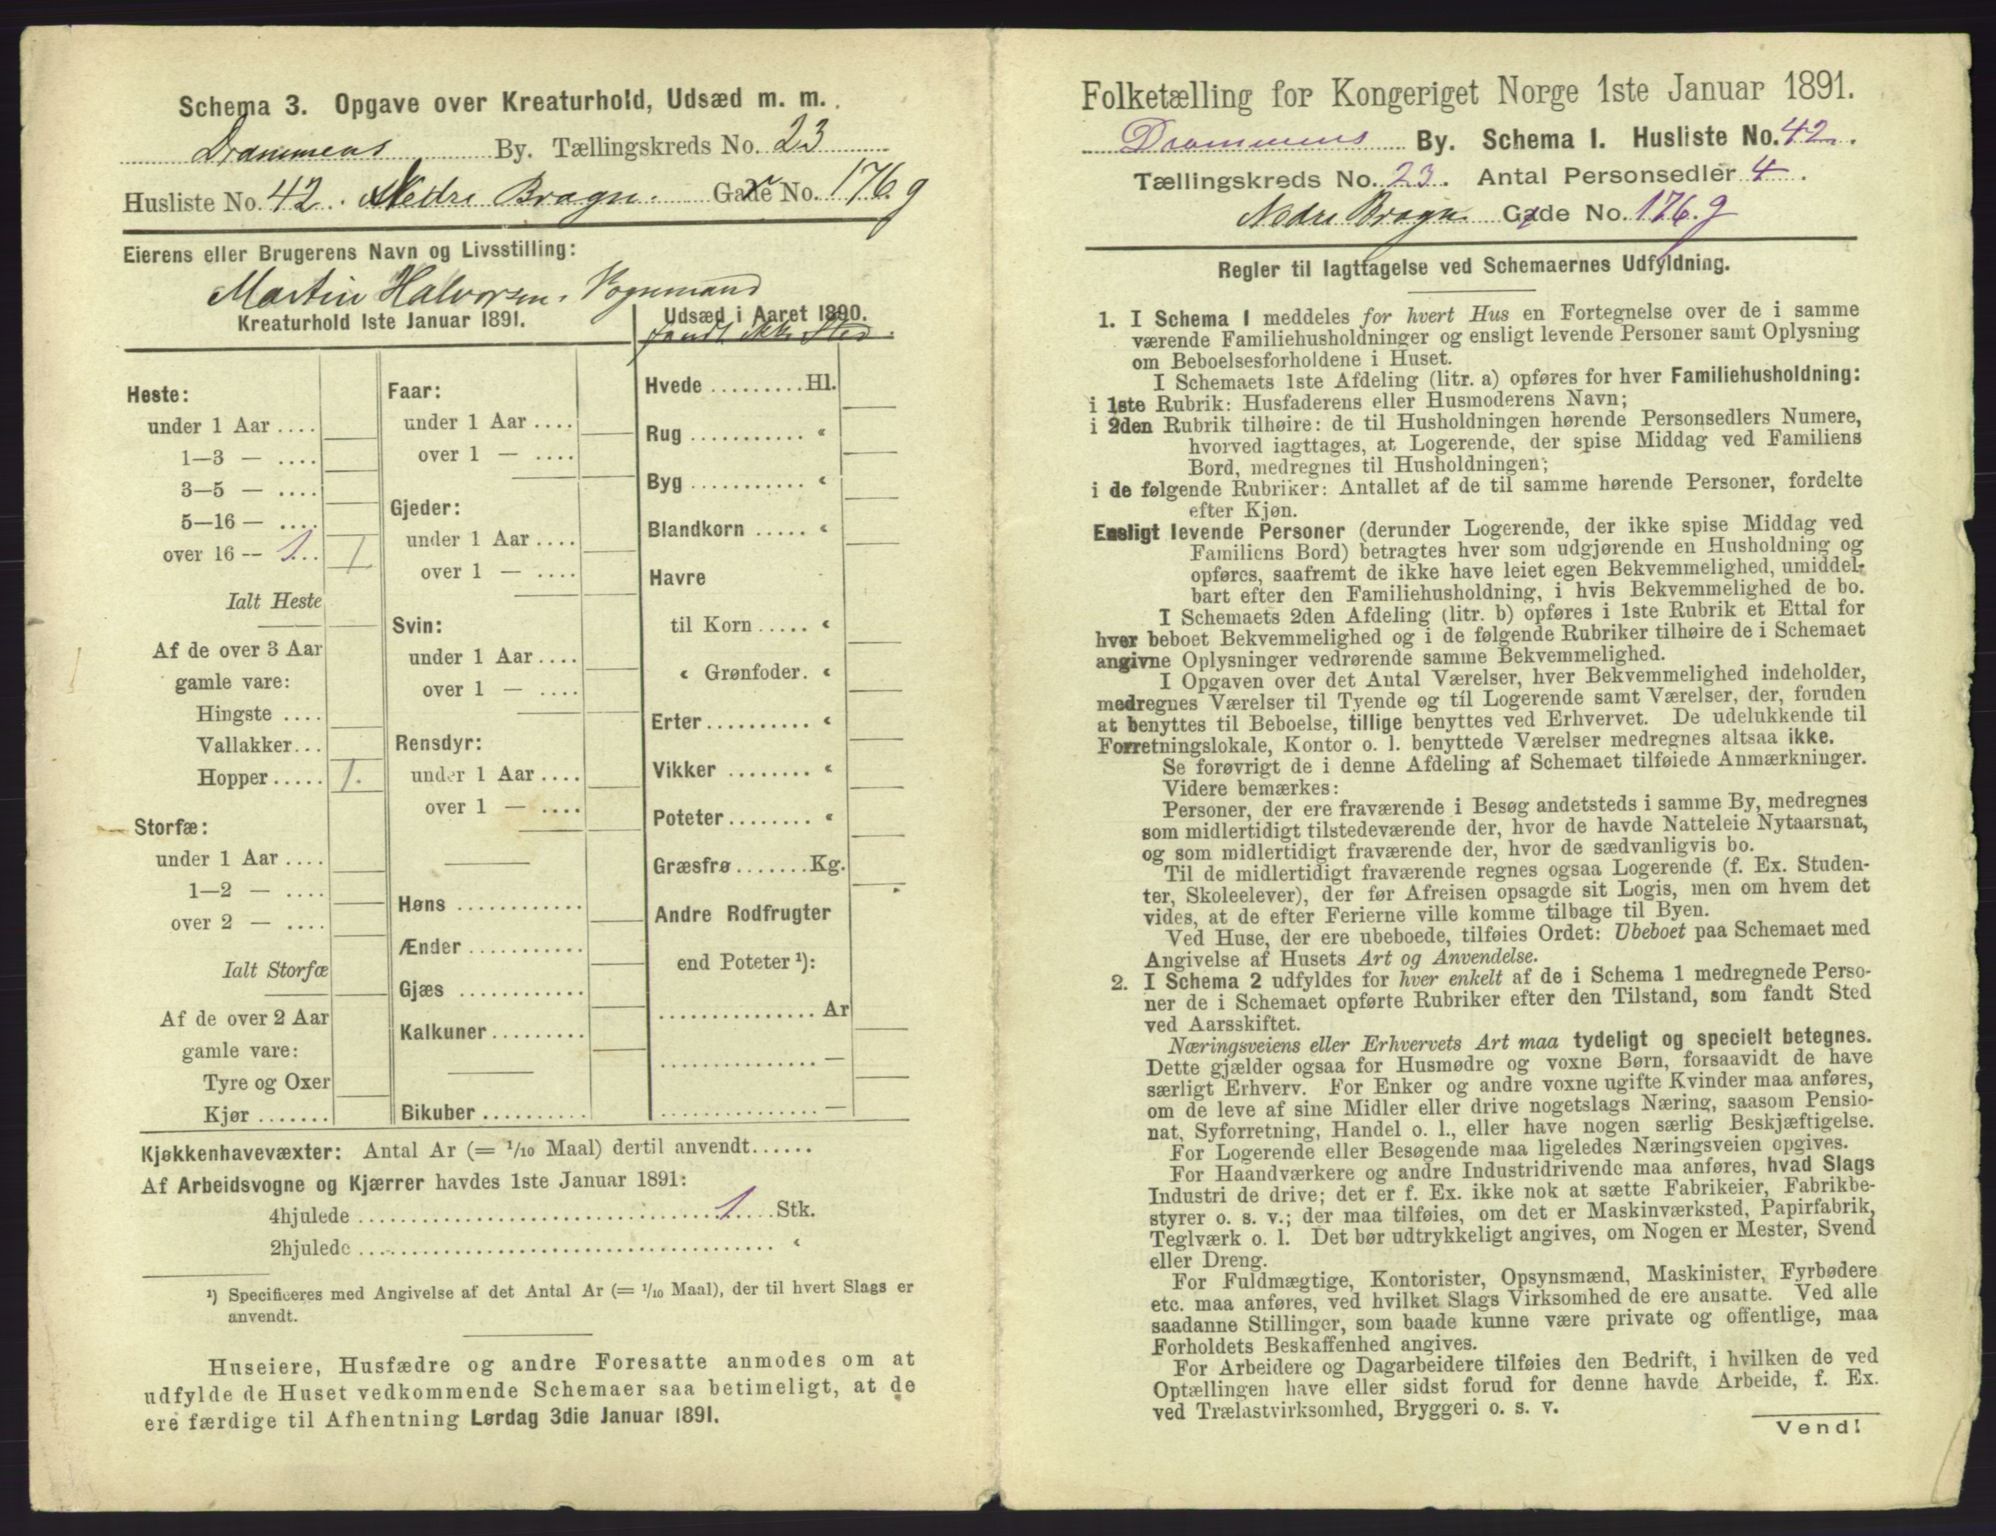 Schema 3. Opgave over Kreaturhold, Udsæd m. m.
Drammens By. Tællingskreds No. 23
Husliste No. 42. Nedre Bragn. Gade No. 176.g
Eierens eller Brugerens Navn og Livsstilling:
Martin Halvorsen, Vognmand
Kreaturhold 1ste Januar 1891.
Heste:
under 1 Aar ....
1—3 — ....
3—5 — ....
5—16 — ....
over 16 — 1 1
Ialt Heste
Af de over 3 Aar
gamle vare:
Hingste ....
Vallakker...
Hopper..... 1.
Storfæ:
under 1 Aar ....
1—2 — ....
over 2 — ....
Ialt Storfæ
Af de over 2 Aar
gamle vare:
Tyre og Oxer
Kjør .......
Faar:
under 1 Aar ....
over 1 — ....
Gjeder:
under 1 Aar ....
over 1 — ....
Svin:
under 1 Aar ....
over 1 — ....
Rensdyr:
under 1 Aar ....
over 1 — ....
Høns ............
Ænder ...........
Gjæs ............
Kalkuner.........
Bikuber ..........
Udsæd i Aaret 1890.
fandt ikke Sted.
Hvede .........Hl.
Rug ........... «
Byg ........... «
Blandkorn ..... «
Havre
til Korn ..... «
« Grønfoder. «
Erter.......... «
Vikker ........ «
Poteter........ «
Græsfrø.......Kg.
Andre Rodfrugter
end Poteter ¹):
............... Ar
............... —
............... —
Kjøkkenhavevæxter: Antal Ar (= 1/10 Maal) dertil anvendt......
Af Arbeidsvogne og Kjærrer havdes 1ste Januar 1891:
4hjulede .................. 1 .... Stk.
2hjulede .................. «
¹) Specificeres med Angivelse af det Antal Ar (= 1/10 Maal), der til hvert Slags er
anvendt.
Huseiere, Husfædre og andre Foresatte anmodes om at
udfylde de Huset vedkommende Schemaer saa betimeligt, at de
ere færdige til Afhentning Lørdag 3die Januar 1891.
Folketælling for Kongeriget Norge 1ste Januar 1891.
Drammens By. Schema 1. Husliste No. 42.
Tællingskreds No. 23. Antal Personsedler 4.
Nedre Bragn. Gade No. 176.g
Regler til Iagttagelse ved Schemaernes Udfyldning.
1. I Schema 1 meddeles for hvert Hus en Fortegnelse over de i samme
værende Familiehusholdninger og ensligt levende Personer samt Oplysning
om Beboelsesforholdene i Huset.
I Schemaets 1ste Afdeling (litr. a) opføres for hver Familiehusholdning:
i 1ste Rubrik: Husfaderens eller Husmoderens Navn;
i 2den Rubrik tilhøire: de til Husholdningen hørende Personsedlers Numere,
hvorved iagttages, at Logerende, der spise Middag ved Familiens
Bord, medregnes til Husholdningen;
i de følgende Rubriker: Antallet af de til samme hørende Personer, fordelte
efter Kjøn.
Ensligt levende Personer (derunder Logerende, der ikke spise Middag ved
Familiens Bord) betragtes hver som udgjørende en Husholdning og
opføres, saafremt de ikke have leiet egen Bekvemmelighed, umiddel-
bart efter den Familiehusholdning, i hvis Bekvemmelighed de bo.
I Schemaets 2den Afdeling (litr. b) opføres i 1ste Rubrik et Ettal for
hver beboet Bekvemmelighed og i de følgende Rubriker tilhøire de i Schemaet
angivne Oplysninger vedrørende samme Bekvemmelighed.
I Opgaven over det Antal Værelser, hver Bekvemmelighed indeholder,
medregnes Værelser til Tyende og til Logerende samt Værelser, der, foruden
at benyttes til Beboelse, tillige benyttes ved Erhvervet. De udelukkende til
Forretningslokale, Kontor o. l. benyttede Værelser medregnes altsaa ikke.
Se forøvrigt de i denne Afdeling af Schemaet tilføiede Anmærkninger.
Videre bemærkes:
Personer, der ere fraværende i Besøg andetsteds i samme By, medregnes
som midlertidigt tilstedeværende der, hvor de havde Natteleie Nytaarsnat,
og som midlertidigt fraværende der, hvor de sædvanligvis bo.
Til de midlertidigt fraværende regnes ogsaa Logerende (f. Ex. Studen-
ter, Skoleelever), der før Afreisen opsagde sit Logis, men om hvem det
vides, at de efter Ferierne ville komme tilbage til Byen.
Ved Huse, der ere ubeboede, tilføies Ordet: Ubeboet paa Schemaet med
Angivelse af Husets Art og Anvendelse.
2. I Schema 2 udfyldes for hver enkelt af de i Schema 1 medregnede Perso-
ner de i Schemaet opførte Rubriker efter den Tilstand, som fandt Sted
ved Aarsskiftet.
Næringsveiens eller Erhvervets Art maa tydeligt og specielt betegnes.
Dette gjælder ogsaa for Husmødre og voxne Børn, forsaavidt de have
særligt Erhverv. For Enker og andre voxne ugifte Kvinder maa anføres,
om de leve af sine Midler eller drive nogetslags Næring, saasom Pensio-
nat, Syforretning, Handel o. l., eller have nogen særlig Beskjæftigelse.
For Logerende eller Besøgende maa ligeledes Næringsveien opgives.
For Haandværkere og andre Industridrivende maa anføres, hvad Slags
Industri de drive; det er f. Ex. ikke nok at sætte Fabrikeier, Fabrikbe-
styrer o. s. v.; der maa tilføies, om det er Maskinværksted, Papirfabrik,
Teglværk o. l. Det bør udtrykkeligt angives, om Nogen er Mester, Svend
eller Dreng.
For Fuldmægtige, Kontorister, Opsynsmænd, Maskinister, Fyrbødere
etc. maa anføres, ved hvilket Slags Virksomhed de ere ansatte. Ved alle
saadanne Stillinger, som baade kunne være private og offentlige, maa
Forholdets Beskaffenhed angives.
For Arbeidere og Dagarbeidere tilføies den Bedrift, i hvilken de ved
Optællingen have eller sidst forud for denne havde Arbeide, f. Ex.
ved Trælastvirksomhed, Bryggeri o. s. v.
Vend!